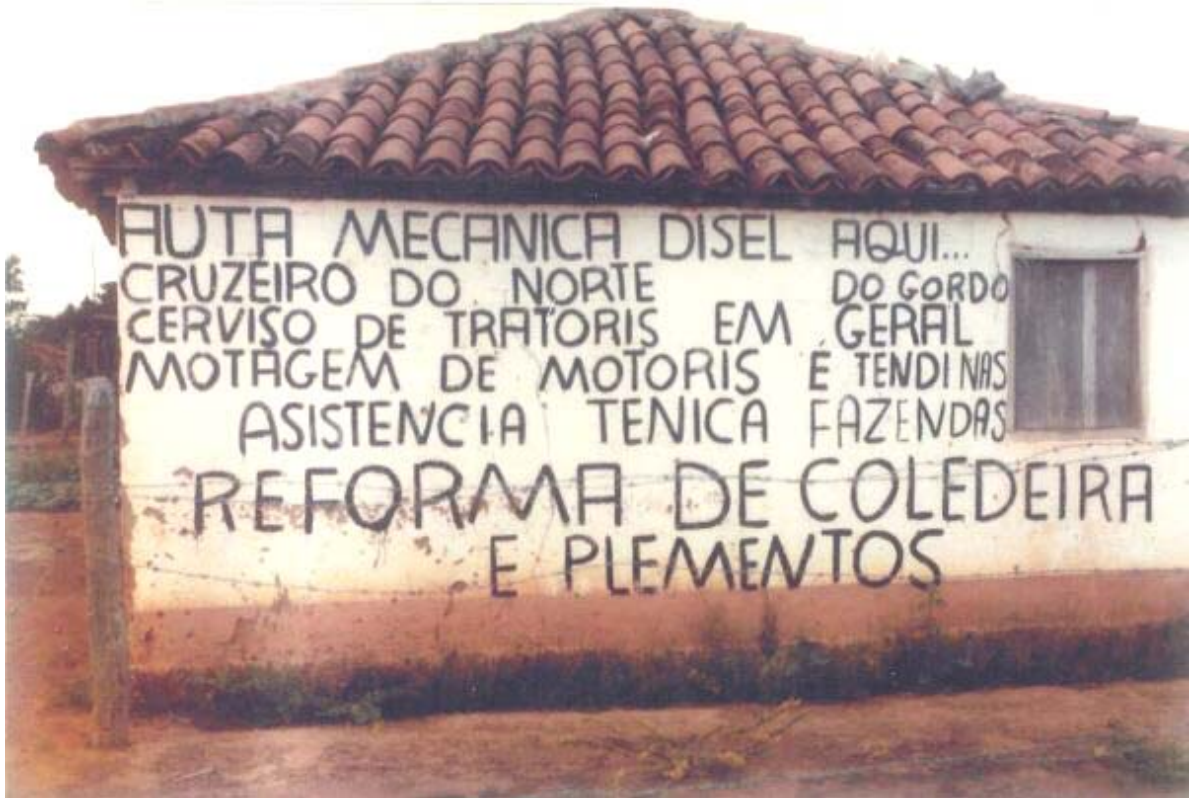 AUTA MECANICA DISEL AQUI...
CRUZEIRO DO NORTE DO GORDO
CERVISO DE TRATORIS EM GERAL
MOTAGEM DE MOTORIS É TENDINAS
ASISTENCIA TENICA FAZENDAS
REFORMA DE COLEDEIRA
E PLEMENTOS